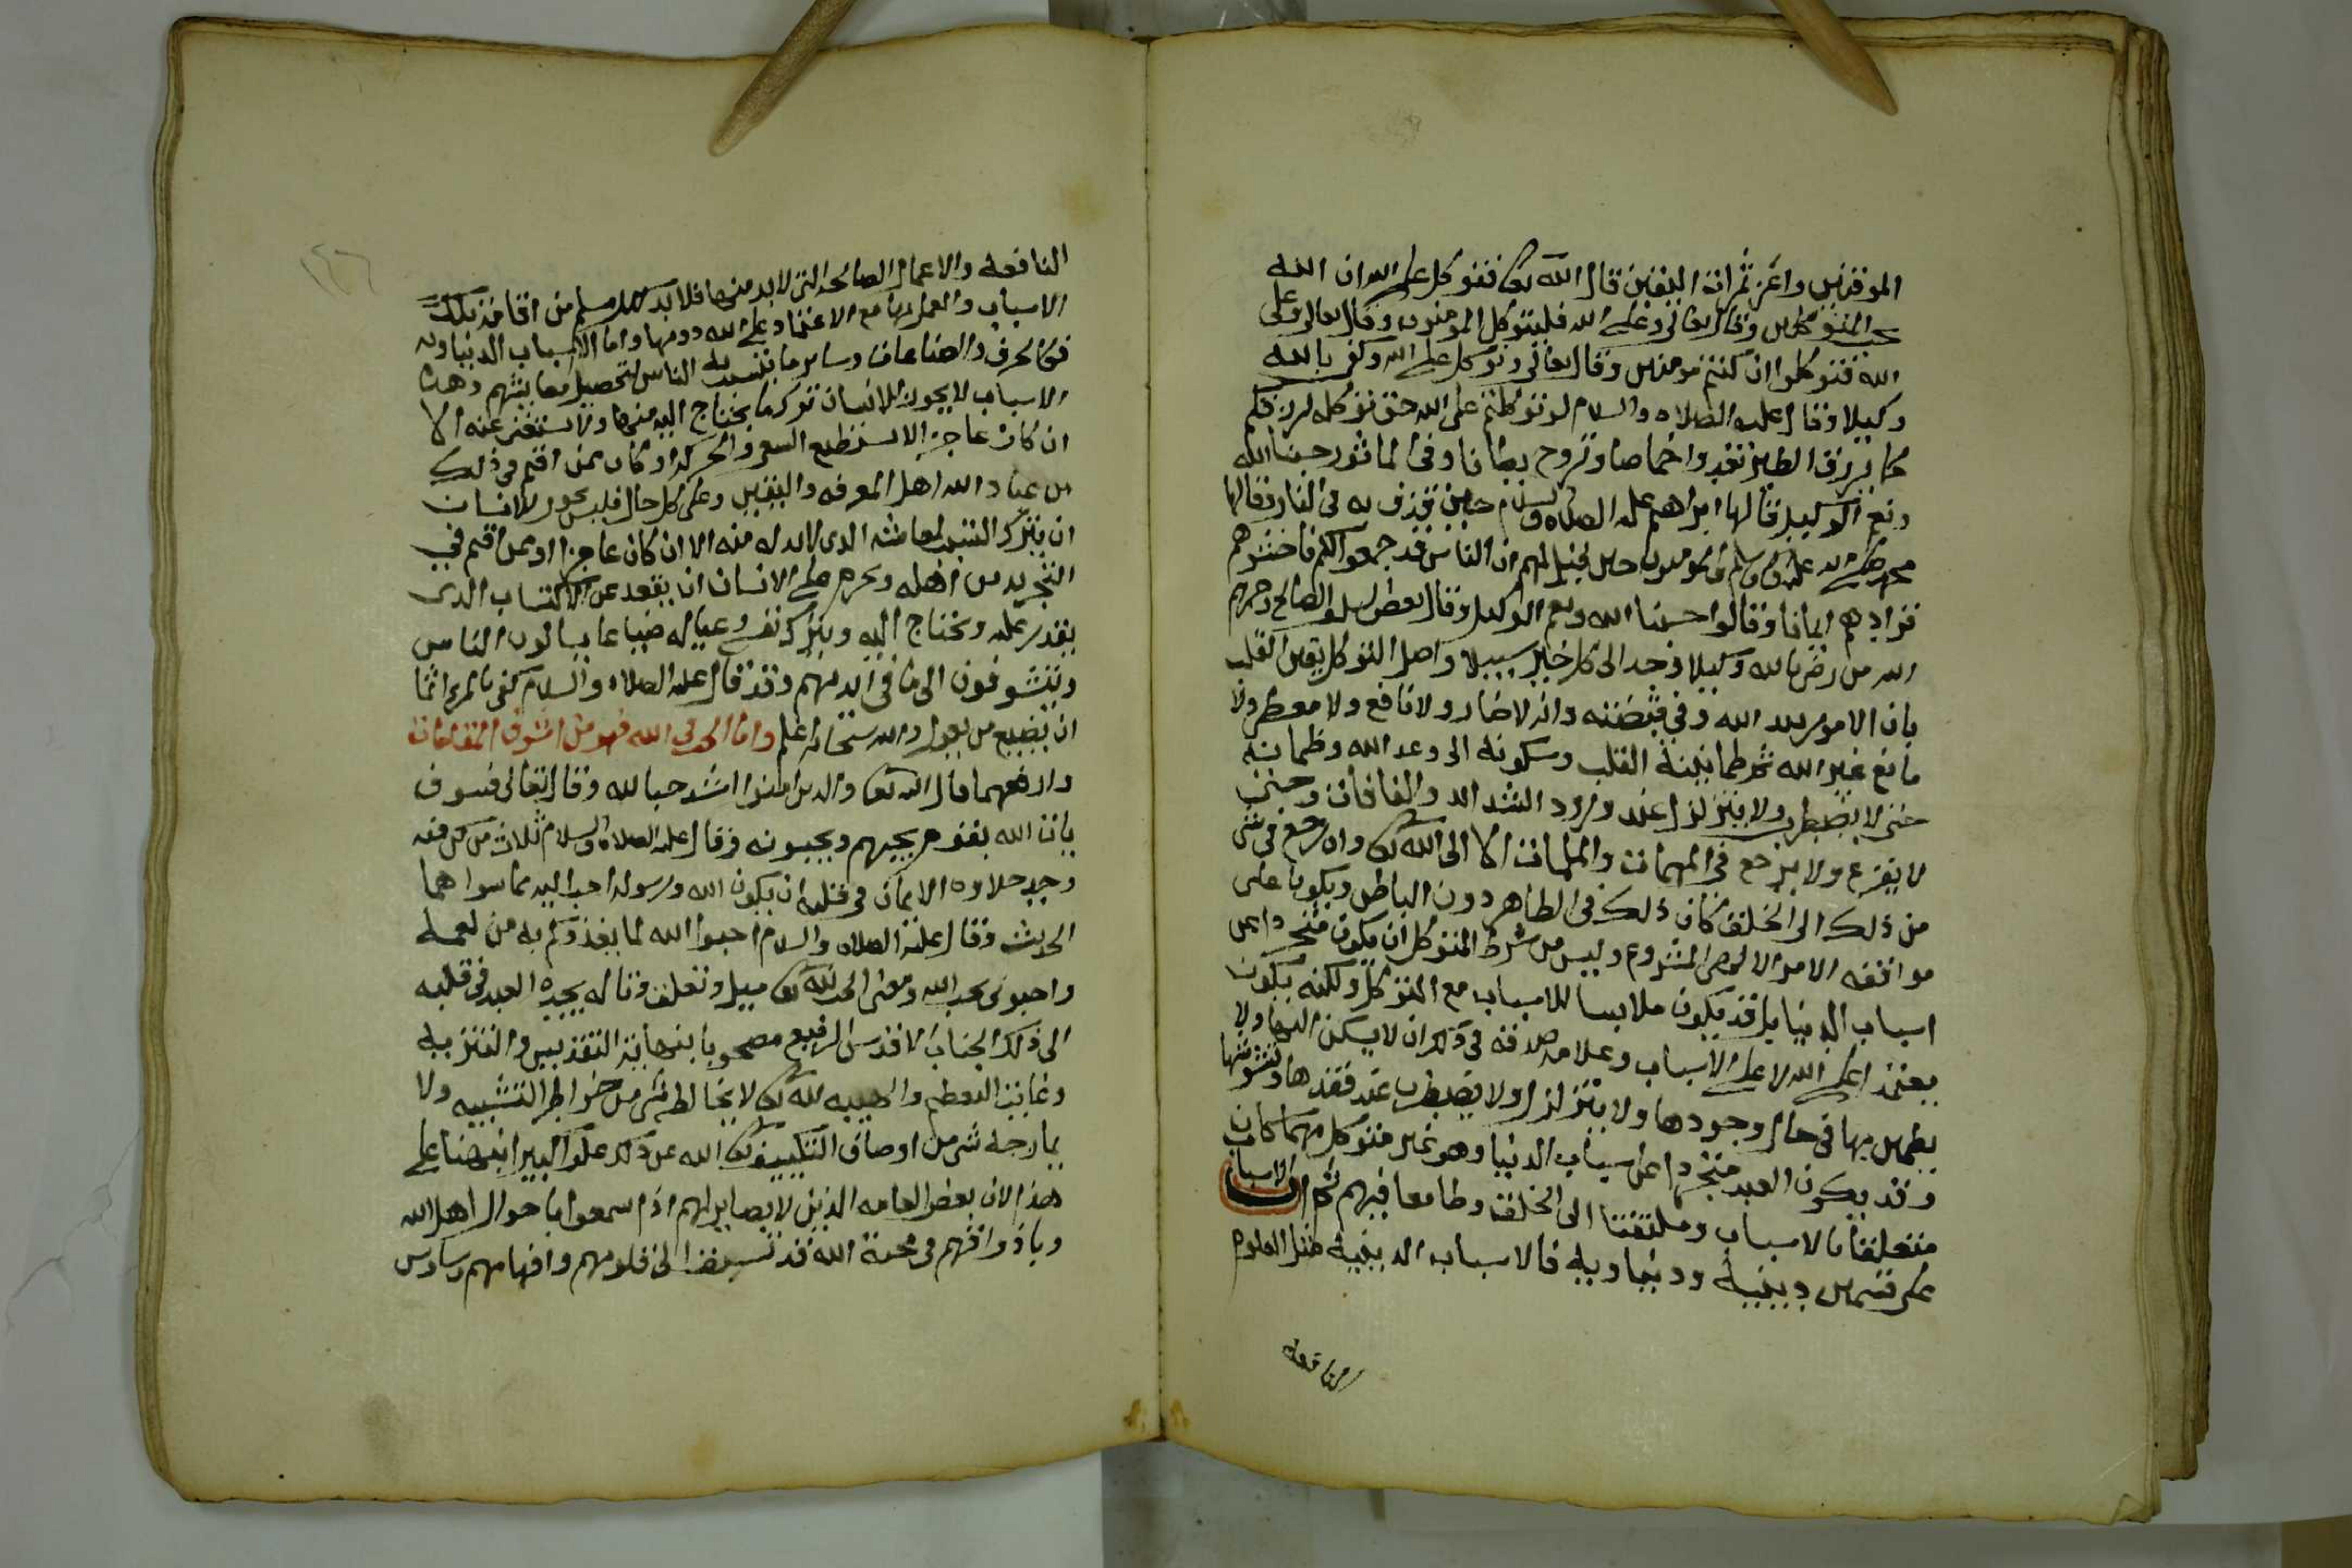 الموقنين واعز ثمرات اليقين قال الله تعالى فتوكل على الله ان الله
يحب المتوكلين وقال تعالى وعلى الله فليتوكل المومنون وقال تعالى وعلى
الله فتوكلوا ان كنتم مومنين وقال تعالى وتوكل على الله وكفى بالله
وكيلا وقال عليه الصلاه والسلام لو توكلتم على الله حق توكله لرزقكم
كما يرزق الطير تغدوا خماصا وتروح بطانا وفي الماثور حسبنا الله
ونعم الوكيل قالها ابراهيم عليه الصلاه والسلام حين قذف به في النار وقالها
محمد صلى الله عليه وسلم والمومنون حين قيل لهم ان الناس قد جمعوا لكم فاخشوهم
فزادهم ايمانا وقالوا حسبنا الله ونعم الوكيل وقال بعض السلف الصالح رحمهم
الله من رضي بالله وكيلا وجد الى كل خير سبيلا واصل التوكل يقين القلب
بان الامور بيد الله وفي قبضته وانه لا ضار ولا نافع ولا معطي ولا
مانع غير الله ثم طمانينة القلب وسكونه الى وعد الله وضمانه
حتى لا يضطرب ولا يتزلزل عند ورود الشدائد والفاقات وحتى
لا يفزع ولا يرجع في المهمات والملمات الا الى الله تعالى وان رجع في شي
من ذلك الى الخلق كان ذلك في الظاهر دون الباطن ويكون على
موافقه الامر الالهي المشروع وليس من شرط المتوكل ان يكون متجردا عن
اسباب الدنيا بل قد يكون ملابسا للاسباب مع التوكل ولكنه يكون
معتمدا على الله لا على الاسباب وعلامه صدقه في ذلك ان لا يسكن اليها ولا
يطمئن بها في حال وجودها ولا يتزلزل ولا يضطرب عند فقدها وتشوشها
وقد يكون العبد متجردا عن اسباب الدنيا وهو غير متوكل مهما كان
متعلقا بالاسباب وملتفتا الى الخلق وطامعا فيهم ثم ان الاسباب
على قسمين دينية ودنياويه فالاسباب الدينيه مثل العلوم
النافعه
النافعه والاعمال الصالحه التي لابد منها فلا بد لكل مسلم من اقامة تلك
الاسباب والعمل بها مع الاعتماد على الله دونها واما الاسباب الدنياويه
فكالحرف والصناعات وساير ما يتسبب به الناس لتحصيل معايشهم وهذه
الاسباب لا يجوز للانسان ترك ما يحتاج اليه منها ولا يستغني عنه الا
ان كان عاجزا لا يستطيع السعي والحركه او كان ممن اقيم في ذلك
من عباد الله اهل المعرفه واليقين وعلى كل حال فليس يجوز للانسان
ان يترك التسبب لمعاشه الذي لابد له منه الا ان كان عاجزا او ممن اقيم في
التجريد من اهله ويحرم على الانسان ان يقعد عن الاكتساب الذي
يقدر عليه ويحتاج اليه ويترك نفسه وعياله ضياعا يسالون الناس
ويتشوفون الى ما في ايديهم وقد قال عليه الصلاه والسلام كفى بالمرء اثما
ان يضيع من يعول والله سبحانه اعلم واما الحب في الله فهو من اشرف المقامات
وارفعها قال الله تعالى والذين امنوا اشد حبا لله وقال تعالى فسوف
ياتي الله بقوم يحبهم ويحبونه وقال عليه الصلاه والسلام ثلاث من كن فيه
وجد حلاوه الايمان في قلبه ان يكون الله ورسوله احب اليه مما سواهما
الحديث وقال عليه الصلاه والسلام احبوا الله لما يغذوكم به من نعمه
واحبوني بحب الله ومعنى الحب لله تعالى ميل وتعلق وتاله يجده العبد في قلبه
الى ذلك الجناب الاقدس الرفيع مصحوبا بنهاية التقديس والتنزيه
وغاية التعظيم والهيبه لله تعالى لا يخالطه شي من خواطر التشبيه ولا
يمازجه شي من اوصاف التكييف تعالى الله عن ذلك علوا كبيرا نبهنا على
هذا لان بعض العامه الذين لا بصاير لهم اذا سمعوا باحوال اهل الله
وباذواقهم في محبة الله قد تسبق الى قلوبهم وافهامهم وساوس